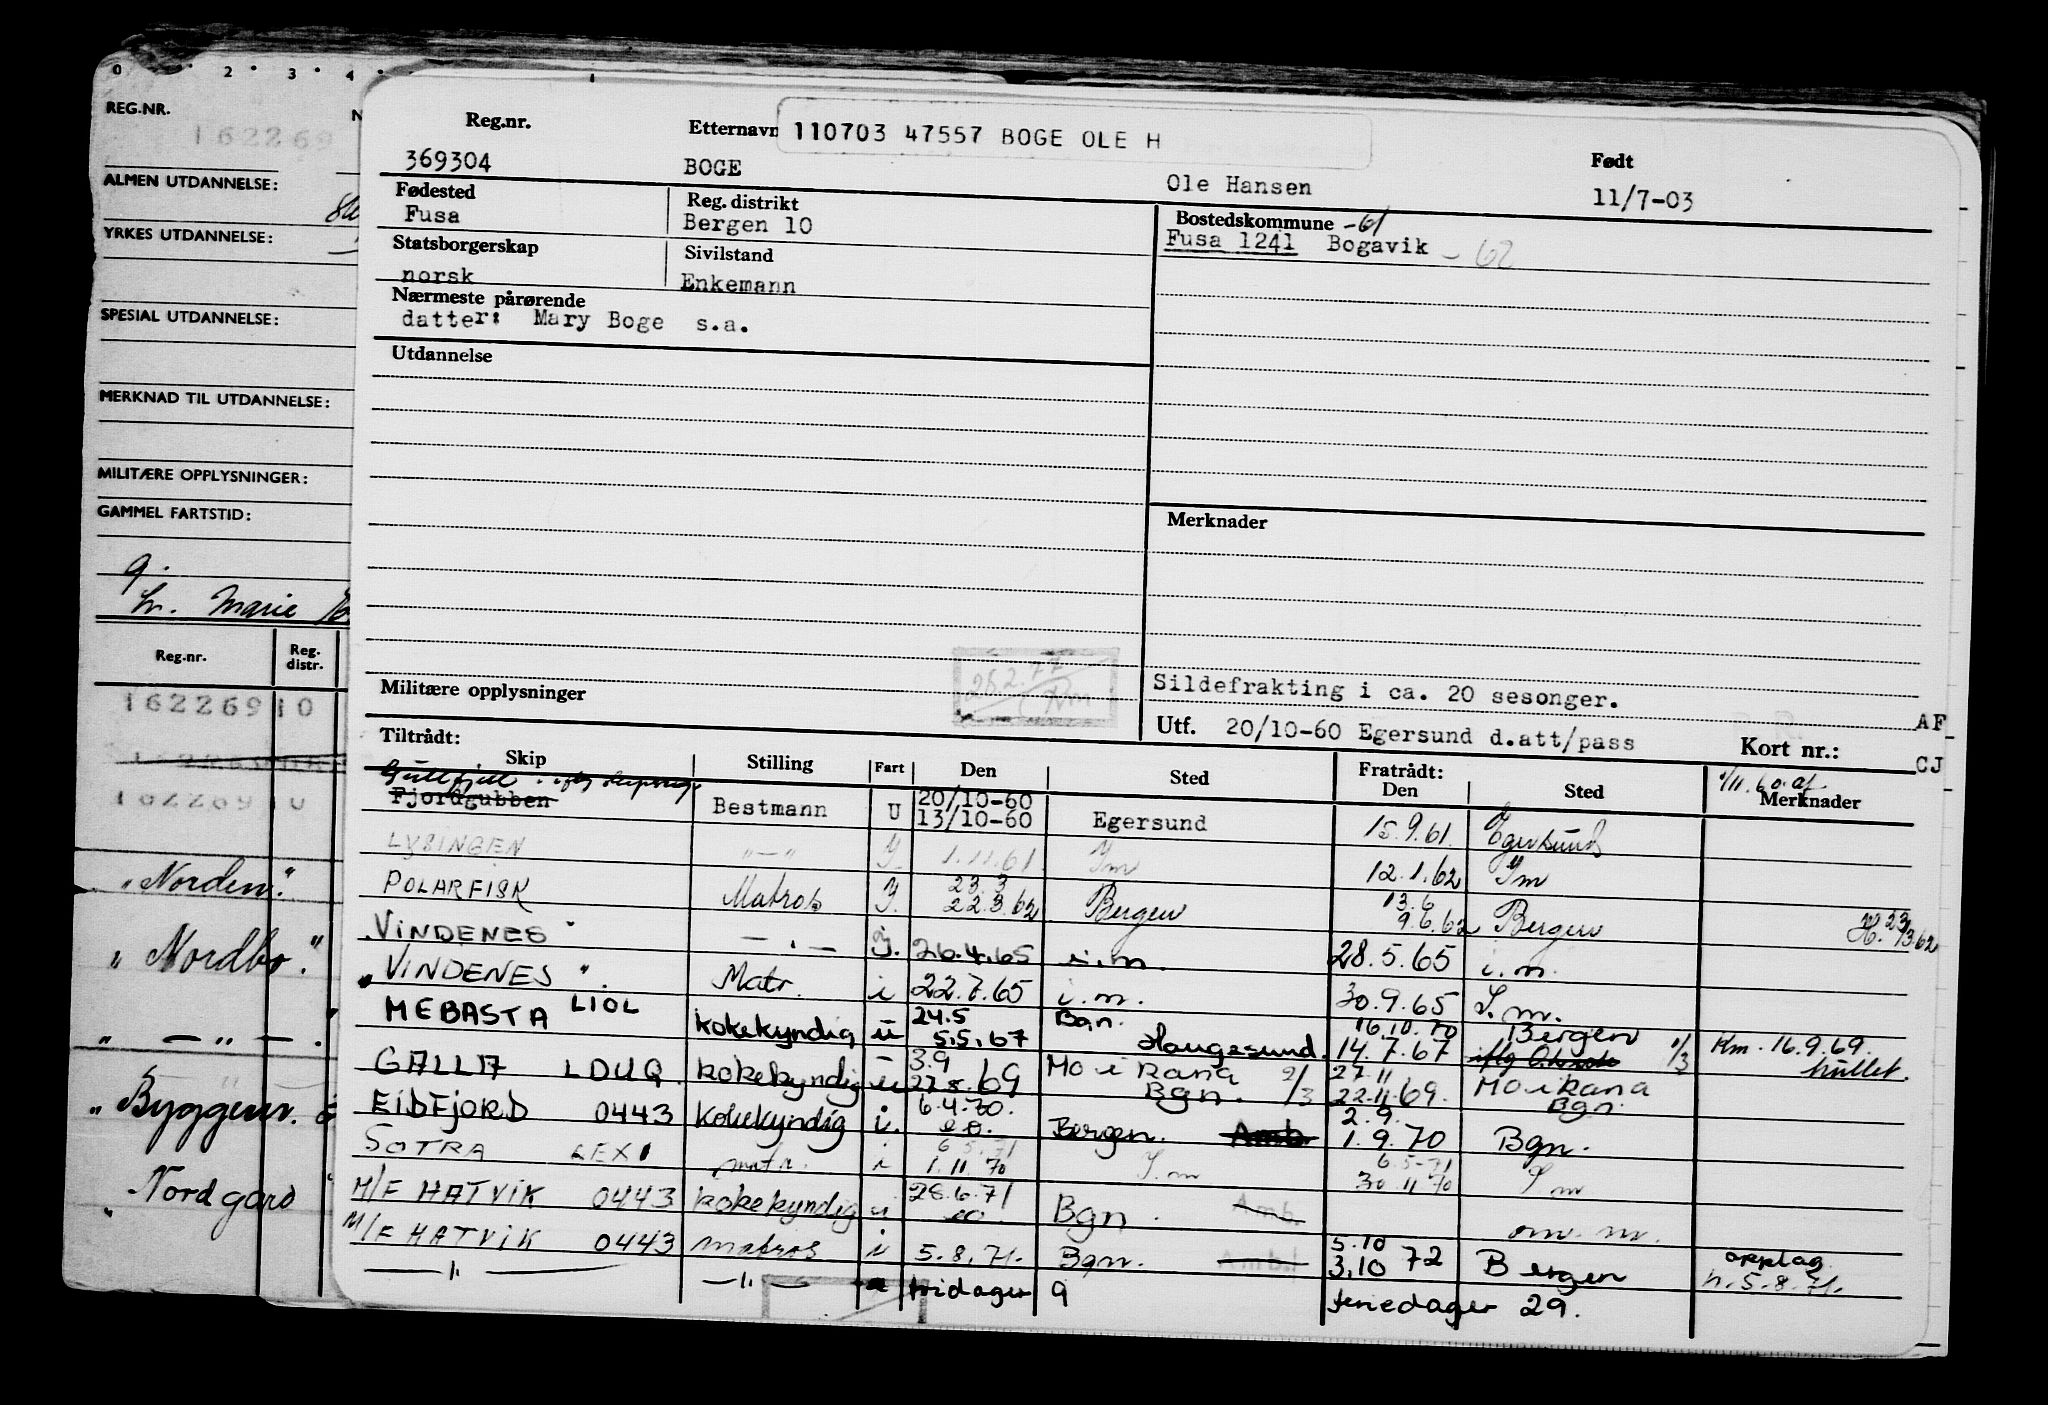 0 2 3 4
REG.NR.
162269
ALMEN UTDANNELSE:
YRKES UTDANNELSE:
SPESIAL UTDANNELSE:
MERKNAD TIL UTDANNELSE:
MILITÆRE OPPLYSNINGER:
GAMMEL FARTSTID:
g.
Marie
Reg.nr. Reg. distr.
162269 10
162269 10
"Norden."
"Nordbo."
" — " — .
"Byggenr.
"Nordgard
Reg.nr. Etternavn 110703 47557 BOGE OLE H Født
369304 BOGE Ole Hansen 11/7-03
Fødested Reg. distrikt Bostedskommune -61
Fusa Bergen 10 Fusa 1241 Bogavik - 62
Statsborgerskap Sivilstand
norsk Enkemann
Nærmeste pårørende
datter: Mary Boge s.a.
Utdannelse
Merknader
25.2.77
Militære opplysninger
Sildefrakting i ca. 20 sesonger.
Utf. 20/10-60 Egersund d.att/pass Kort nr.:
AF
CJ
Tiltrådt: Fratrådt:
Skip Stilling Fart Den Sted Den Sted Merknader
Gullfjell
Fjordgubben Bestmann U 20/10-60 13/10-60 Egersund 15.9.61 Egersund
LYSINGEN —"— 1.11.61 Im 12.1.62 Im
POLARFISK Matros 23.3 22.3.62 Bergen 13.6 9.6.62 Bergen
VINDENES — " — 26.4.65 i.m. 28.5.65 i.m.
"VINDENES". Matr. i 22.7.65 i.m. 30.9.65 I.m.
MEBASTA LIOL kokekyndig u 24.5 5.5.67 Bgn. Haugesund. 16.10.70 14.7.67 Bergen Km. 16.9.69.
GALLA LDUQ kokekyndig u 3.9 27.8.69 Mo i Rana Bgn. 2/3 27.11 22.11.69. Mo i Rana Bgn.
EIDFJORD 0443 kokekyndig i. 6.4.70. Bergen. Amb. 2.9. 1.9.70 Bgn.
SOTRA LEXI matr. i 6.5.71 1.11.70 I.m 6.5-71 30.11.70 I m
M/F HATVIK 0443 kokekyndig u 28.6.71 Bgn. Amb. om. m.
M/F HATVIK 0443 matros i 5.8.71. Bgn. Amb. 5.10 3.10 72 Bergen opptag n. 5.8.71.
— " — — " — fridager 9 feriedager 29.